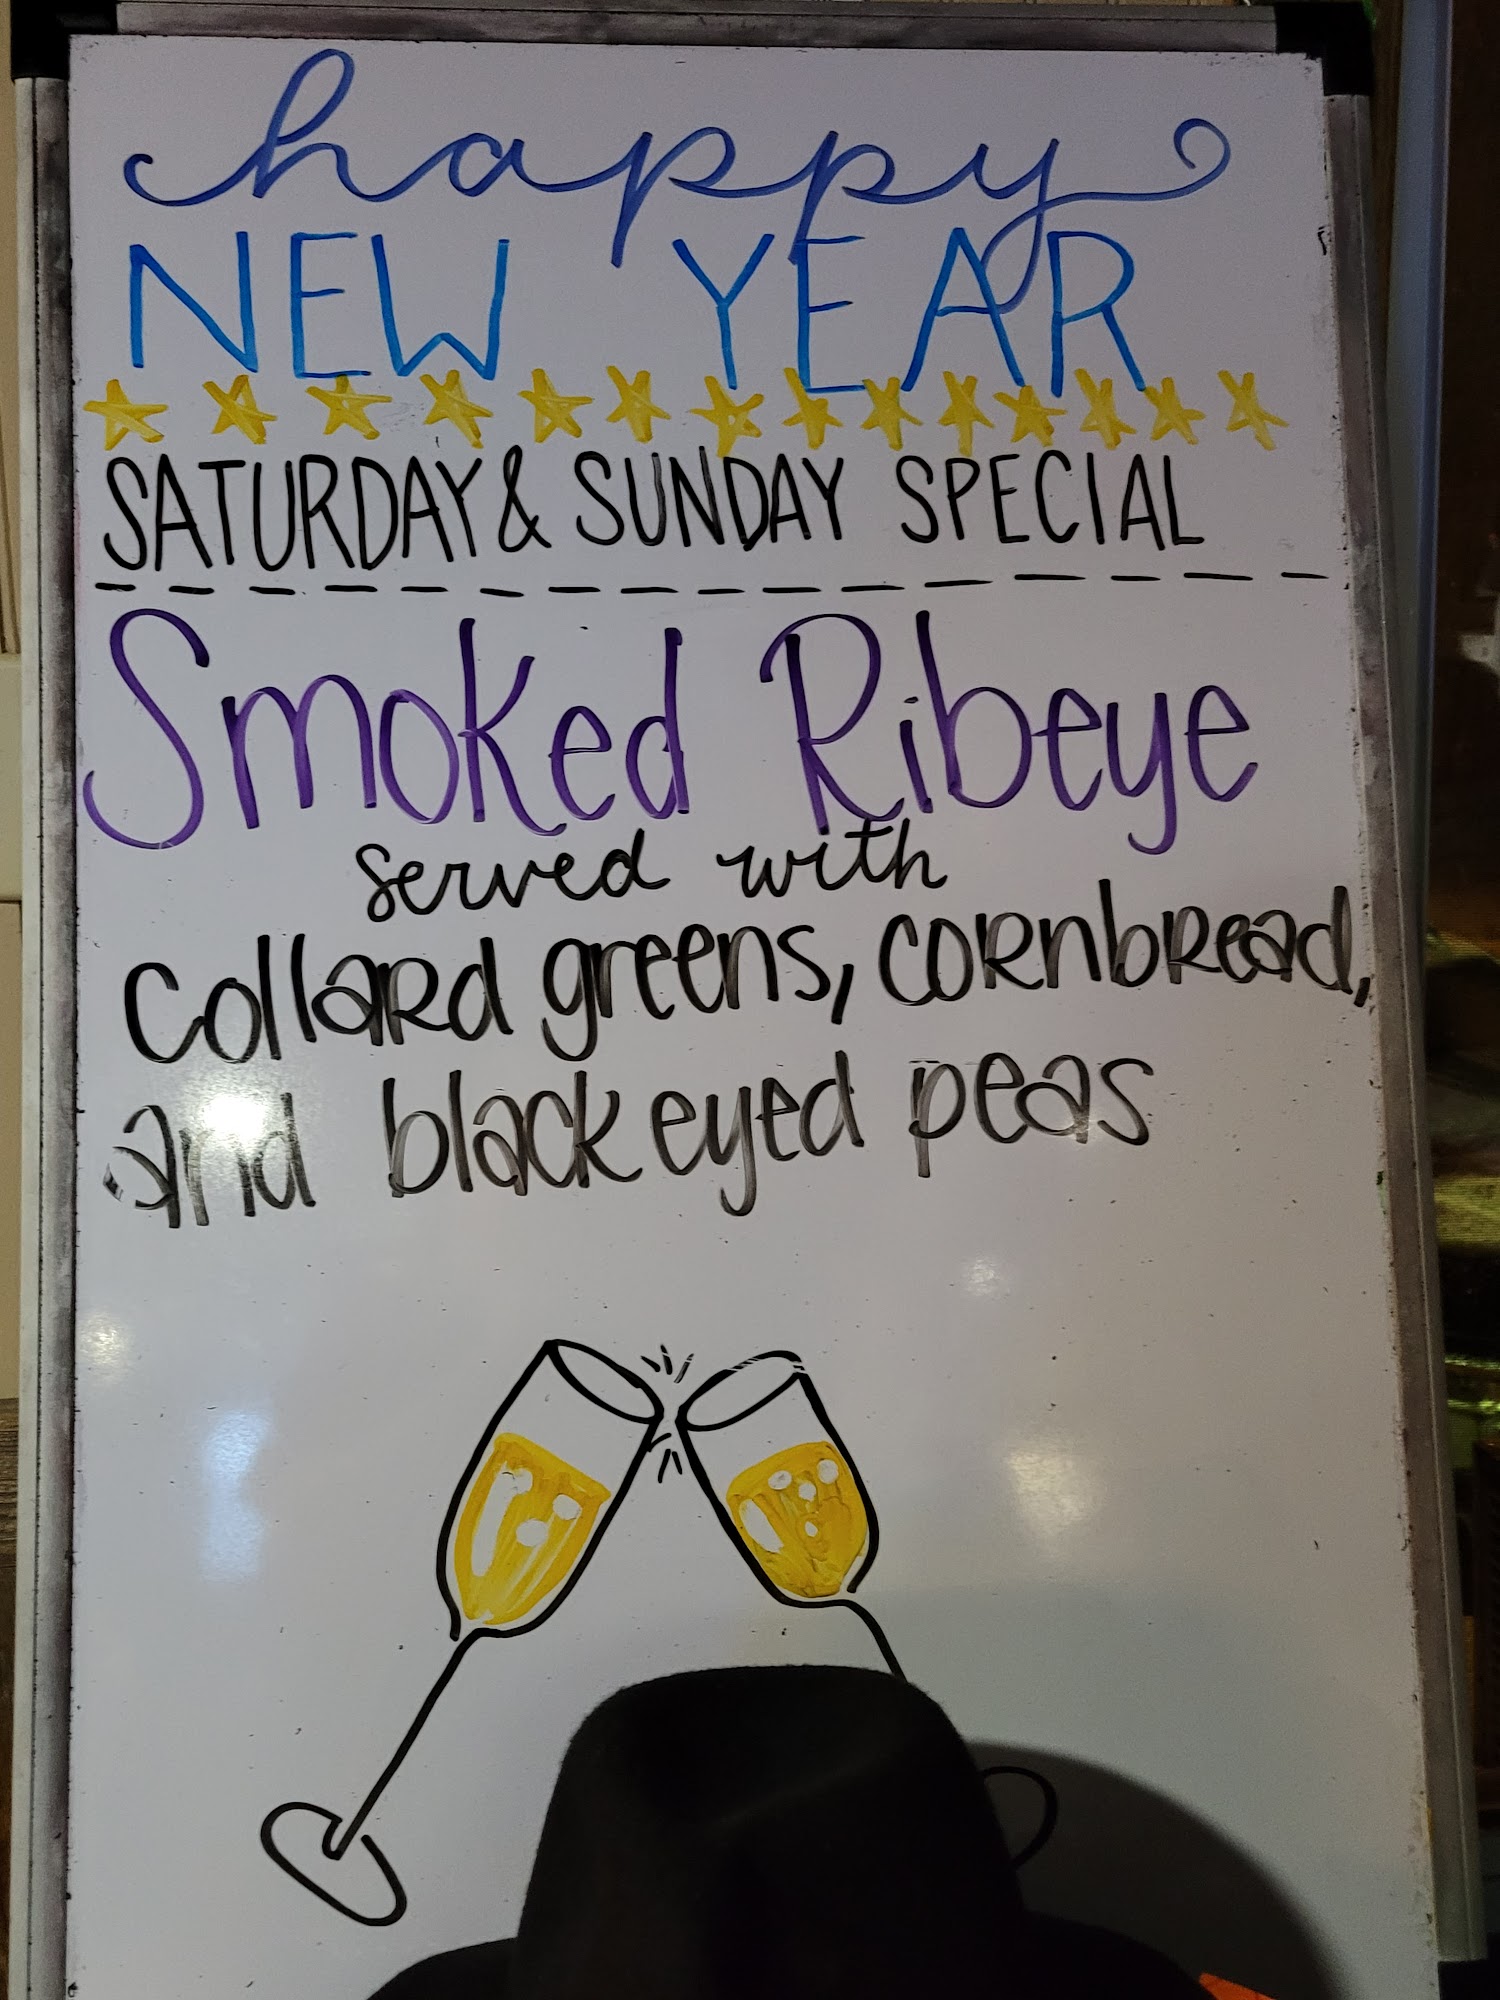 happy
NEW YEAR
SATURDAY & SUNDAY SPECIAL
Smoked Ribeye
served with
Collard greens, cornbread,
and black eyed peas